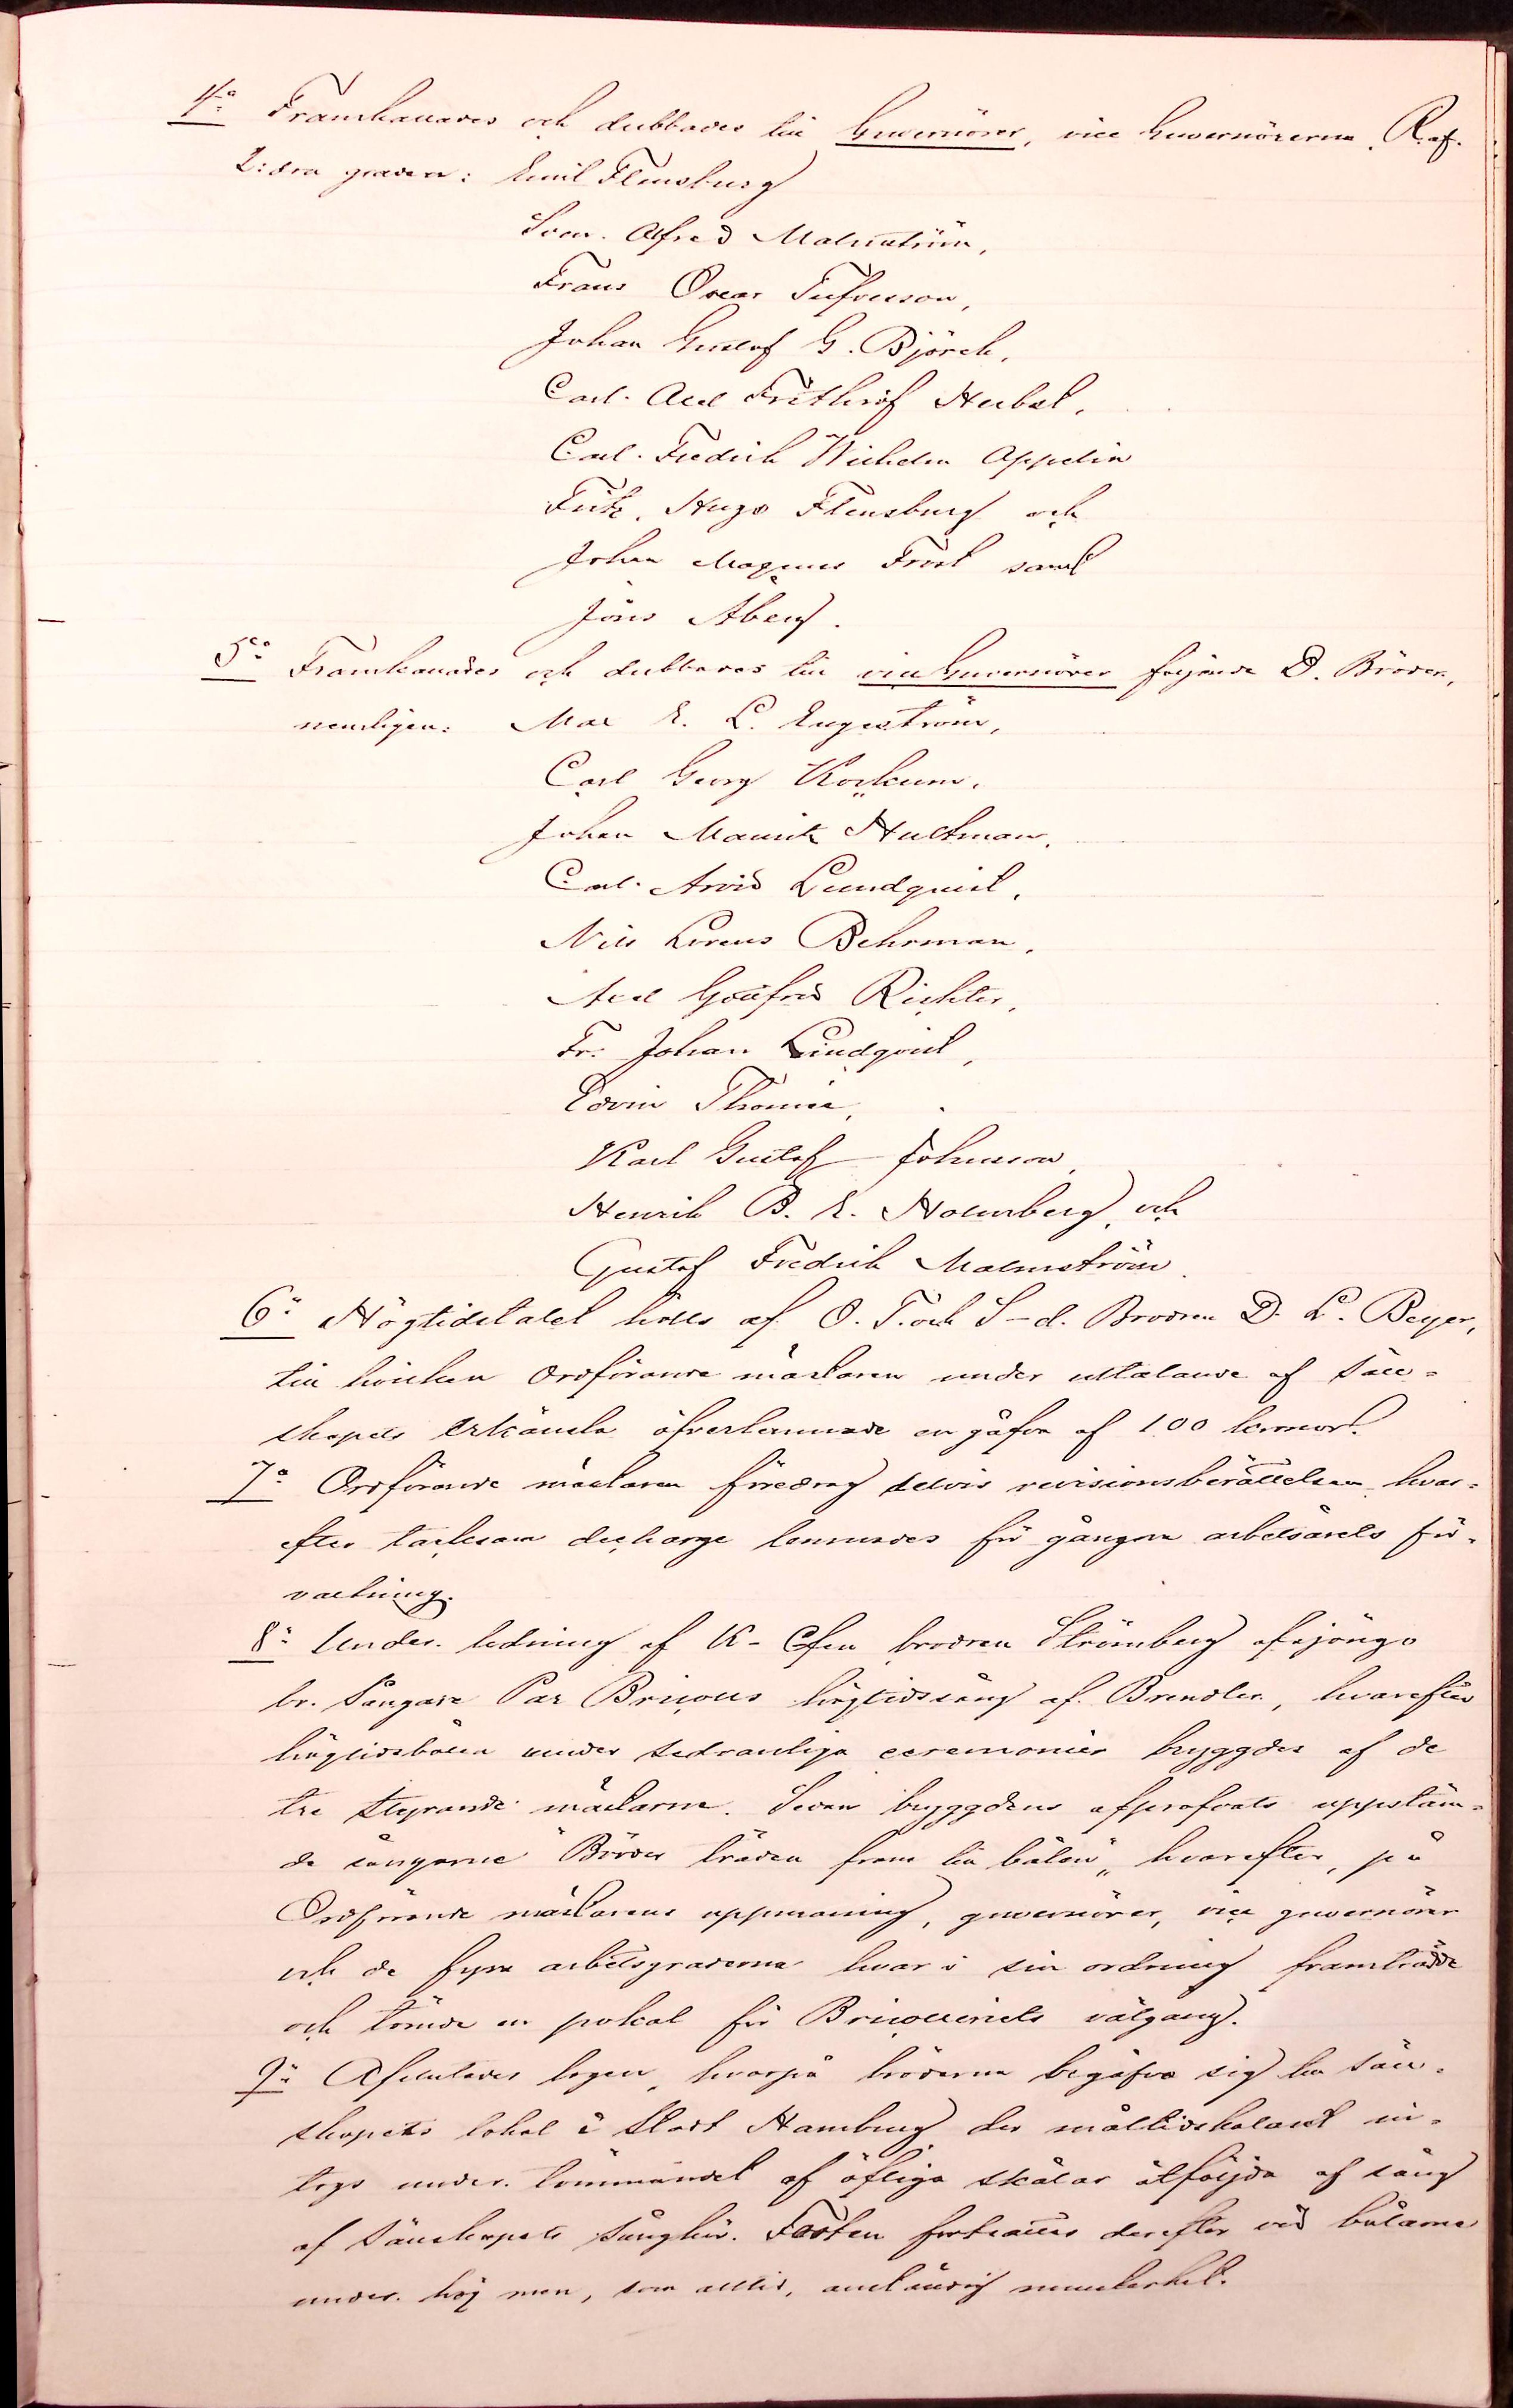 4:o Framkallades och dubbades till Guvernörer, vice Guvernörerna, R. af.
2:dra graden: Emil Flensburg
Sven Alfred Malmström,
Frans Oscar Tufvesson,
Johan Gustaf G. Björck,
Carl Axel Frithiof Heubst,
Carl Fredrik Wilhelm Appelin
Fritz Hugo Flensburg och
Johan Magnus Frost samt
Jöns Åberg.
5:o Framkallades och dubbades till vice Guvernörer följande D. Bröder,
nemligen: Max E. L. Engeström,
Carl Georg Kockum,
Johan Mauritz Hultman,
Carl Arvid Lundquist,
Nils Lorens Behrman,
Axel Gottfrid Richter,
Fr. Johan Lindqvist,
Edvin Thomée,
Karl Gustaf Johnsson,
Henrik B. E. Holmberg, och
Gustaf Fredrik Malmström.
6:o Högtidstalet hölls af O. T. och S-d. Brodren D. L. Beyer,
till hvilken Ordförande mästaren under uttalande af Säll-
skapets erkänsla öfverlemnade en gåfva af 100 kronor.
7:o Ordförande mästaren föredrog delvis revisionsberättelsen hvar-
efter tacksam decharge lemnades för gångna arbetsårets för-
valtning.
8:o Under ledning af K- Cfen brodren Strömberg afsjöngo
br. Sångare Par Bricoles högtidssång af Brendler, hvarefter
högtidsbålen under sedvanliga ceremonier bryggdes af de
tre styrande mästarne. Sedan bryggdens afprofvats uppstäm-
de sångarne "Bröder träden fram till bålen", hvarefter, på
Ordförande mästarens uppmaning, guvernörer, vice guvernörer
och de fyra arbetsgraderna hvar i sin ordning framträdde
och tömde en pokal för Bricolleriets välgång.
9:o Afslutades logen, hvarpå bröderna begåfvo sig till Säll-
skapets lokal å Stadt Hamburg der måltidskalaset in-
togs under tömmandet af öfliga skålar åtföljda af sång
af Sällskapets sångkör. Festen fortsattes derefter vid bålarne
under hög men, som alltid, anständig munterhet.